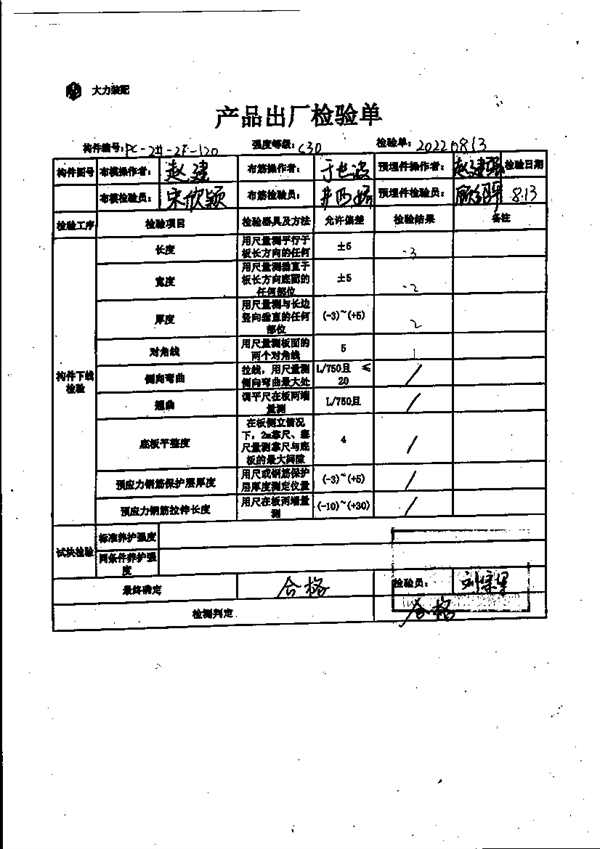 大力装配
产品出厂检验单
构件编号: PC-2#-2F-120 强度等级: C30 检验单: 20220813
构件图号 布模操作者: 赵建 布筋操作者: 预埋件操作者: 赵建强 检验日期
布模检验员: 宋欣颖 布筋检验员: 预埋件检验员: 8.13
检验工序 检验项目 检验器具及方法 允许偏差 检验结果 备注
构件下线检验
长度 用尺量测平行于板长方向的任何 ±5 -3
宽度 用尺量测垂直于板长方向底面的任何部位 ±5 -2
厚度 用尺量测与长边竖向垂直的任何部位 (-3)~(+5) 2
对角线 用尺量测板面的两个对角线 5 1
侧向弯曲 拉线,用尺量测侧向弯曲最大处 L/750且 ≤20 /
翘曲 调平尺在板两端量测 L/750且 /
底板平整度 在板侧立情况下,2m靠尺、塞尺量测靠尺与底板的最大间隙 4 /
预应力钢筋保护层厚度 用尺或钢筋保护层厚度测定仪量 (-3)~(+5) /
预应力钢筋拉伸长度 用尺在板两端量测 (-10)~(+30) /
试块检验 标准养护强度
同条件养护强度
最终确定 合格 检验员:
检测判定 合格